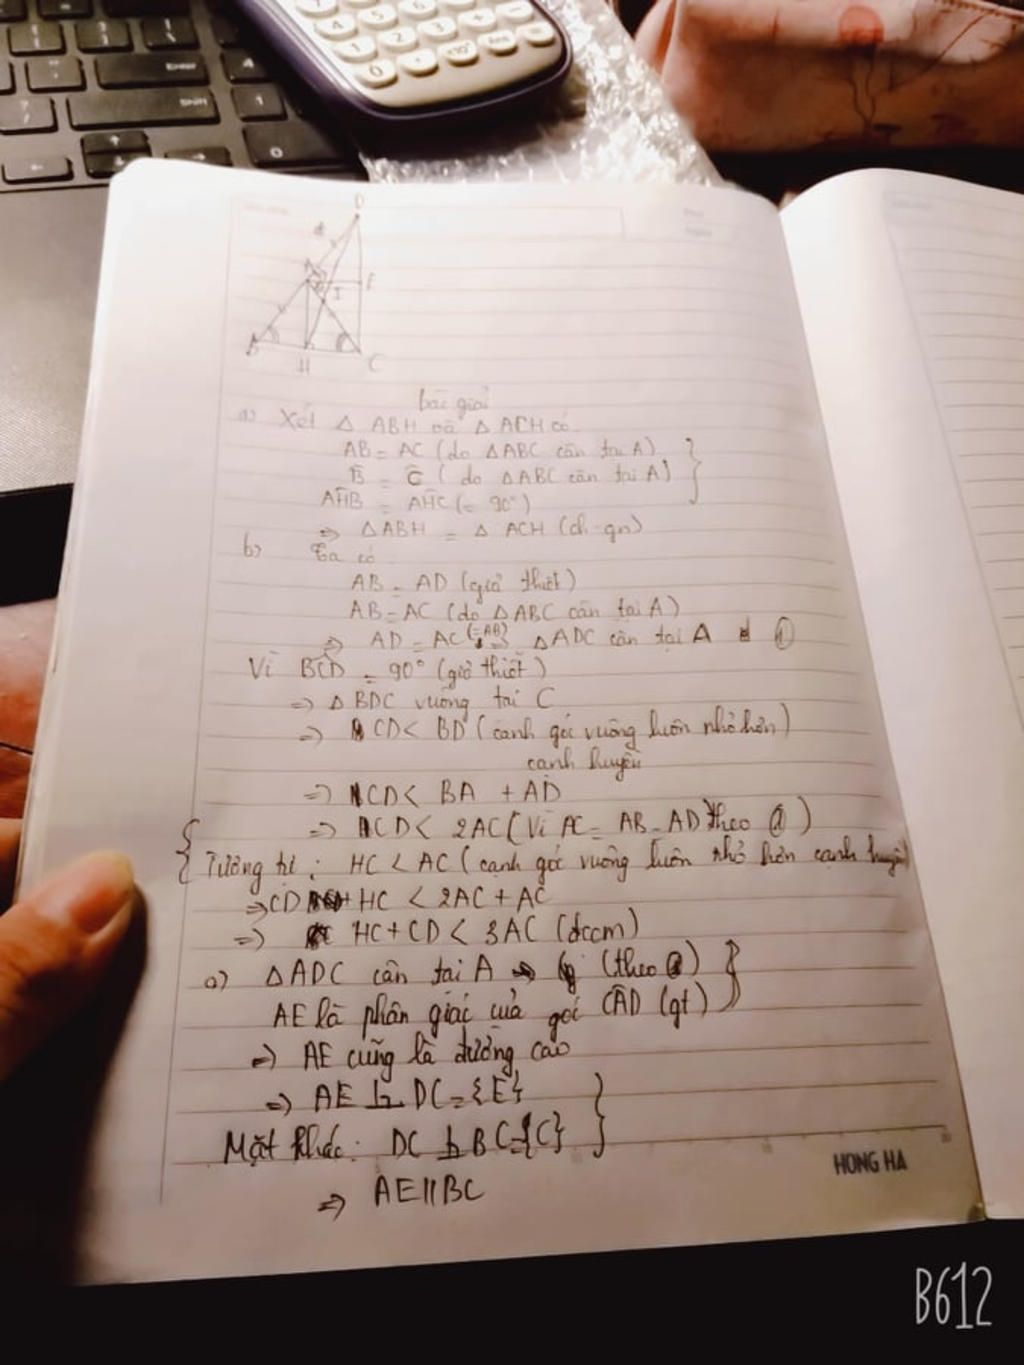 Enter
Shift
D
A
E
I
B
H
C
bài giải
a) Xét △ ABH và △ ACH có
AB = AC (do △ABC cân tại A)
B̂ = Ĉ (do △ABC cân tại A)
AĤB = AĤC (= 90°)
⇒ △ABH = △ ACH (ch-gn)
b) Ta có
AB = AD (giả thiết)
AB = AC (do △ABC cân tại A)
⇒ AD = AC (=AB) ⇒ △ADC cân tại A ①
Vì BĈD = 90° (giả thiết)
⇒ △ BDC vuông tại C
⇒ CD < BD (cạnh góc vuông luôn nhỏ hơn)
cạnh huyền
⇒ CD < BA + AD
⇒ CD < 2AC (Vì AC = AB = AD theo ①)
Tương tự: HC < AC (cạnh góc vuông luôn nhỏ hơn cạnh huyền)
⇒ CD + HC < 2AC + AC
⇒ HC + CD < 3AC (đccm)
c) △ADC cân tại A (theo ①)
AE là phân giác của góc CÂD (gt)
⇒ AE cũng là đường cao
⇒ AE ⊥ DC = {E}
Mặt khác: DC ⊥ BC = {C}
⇒ AE // BC
HONG HA
B612